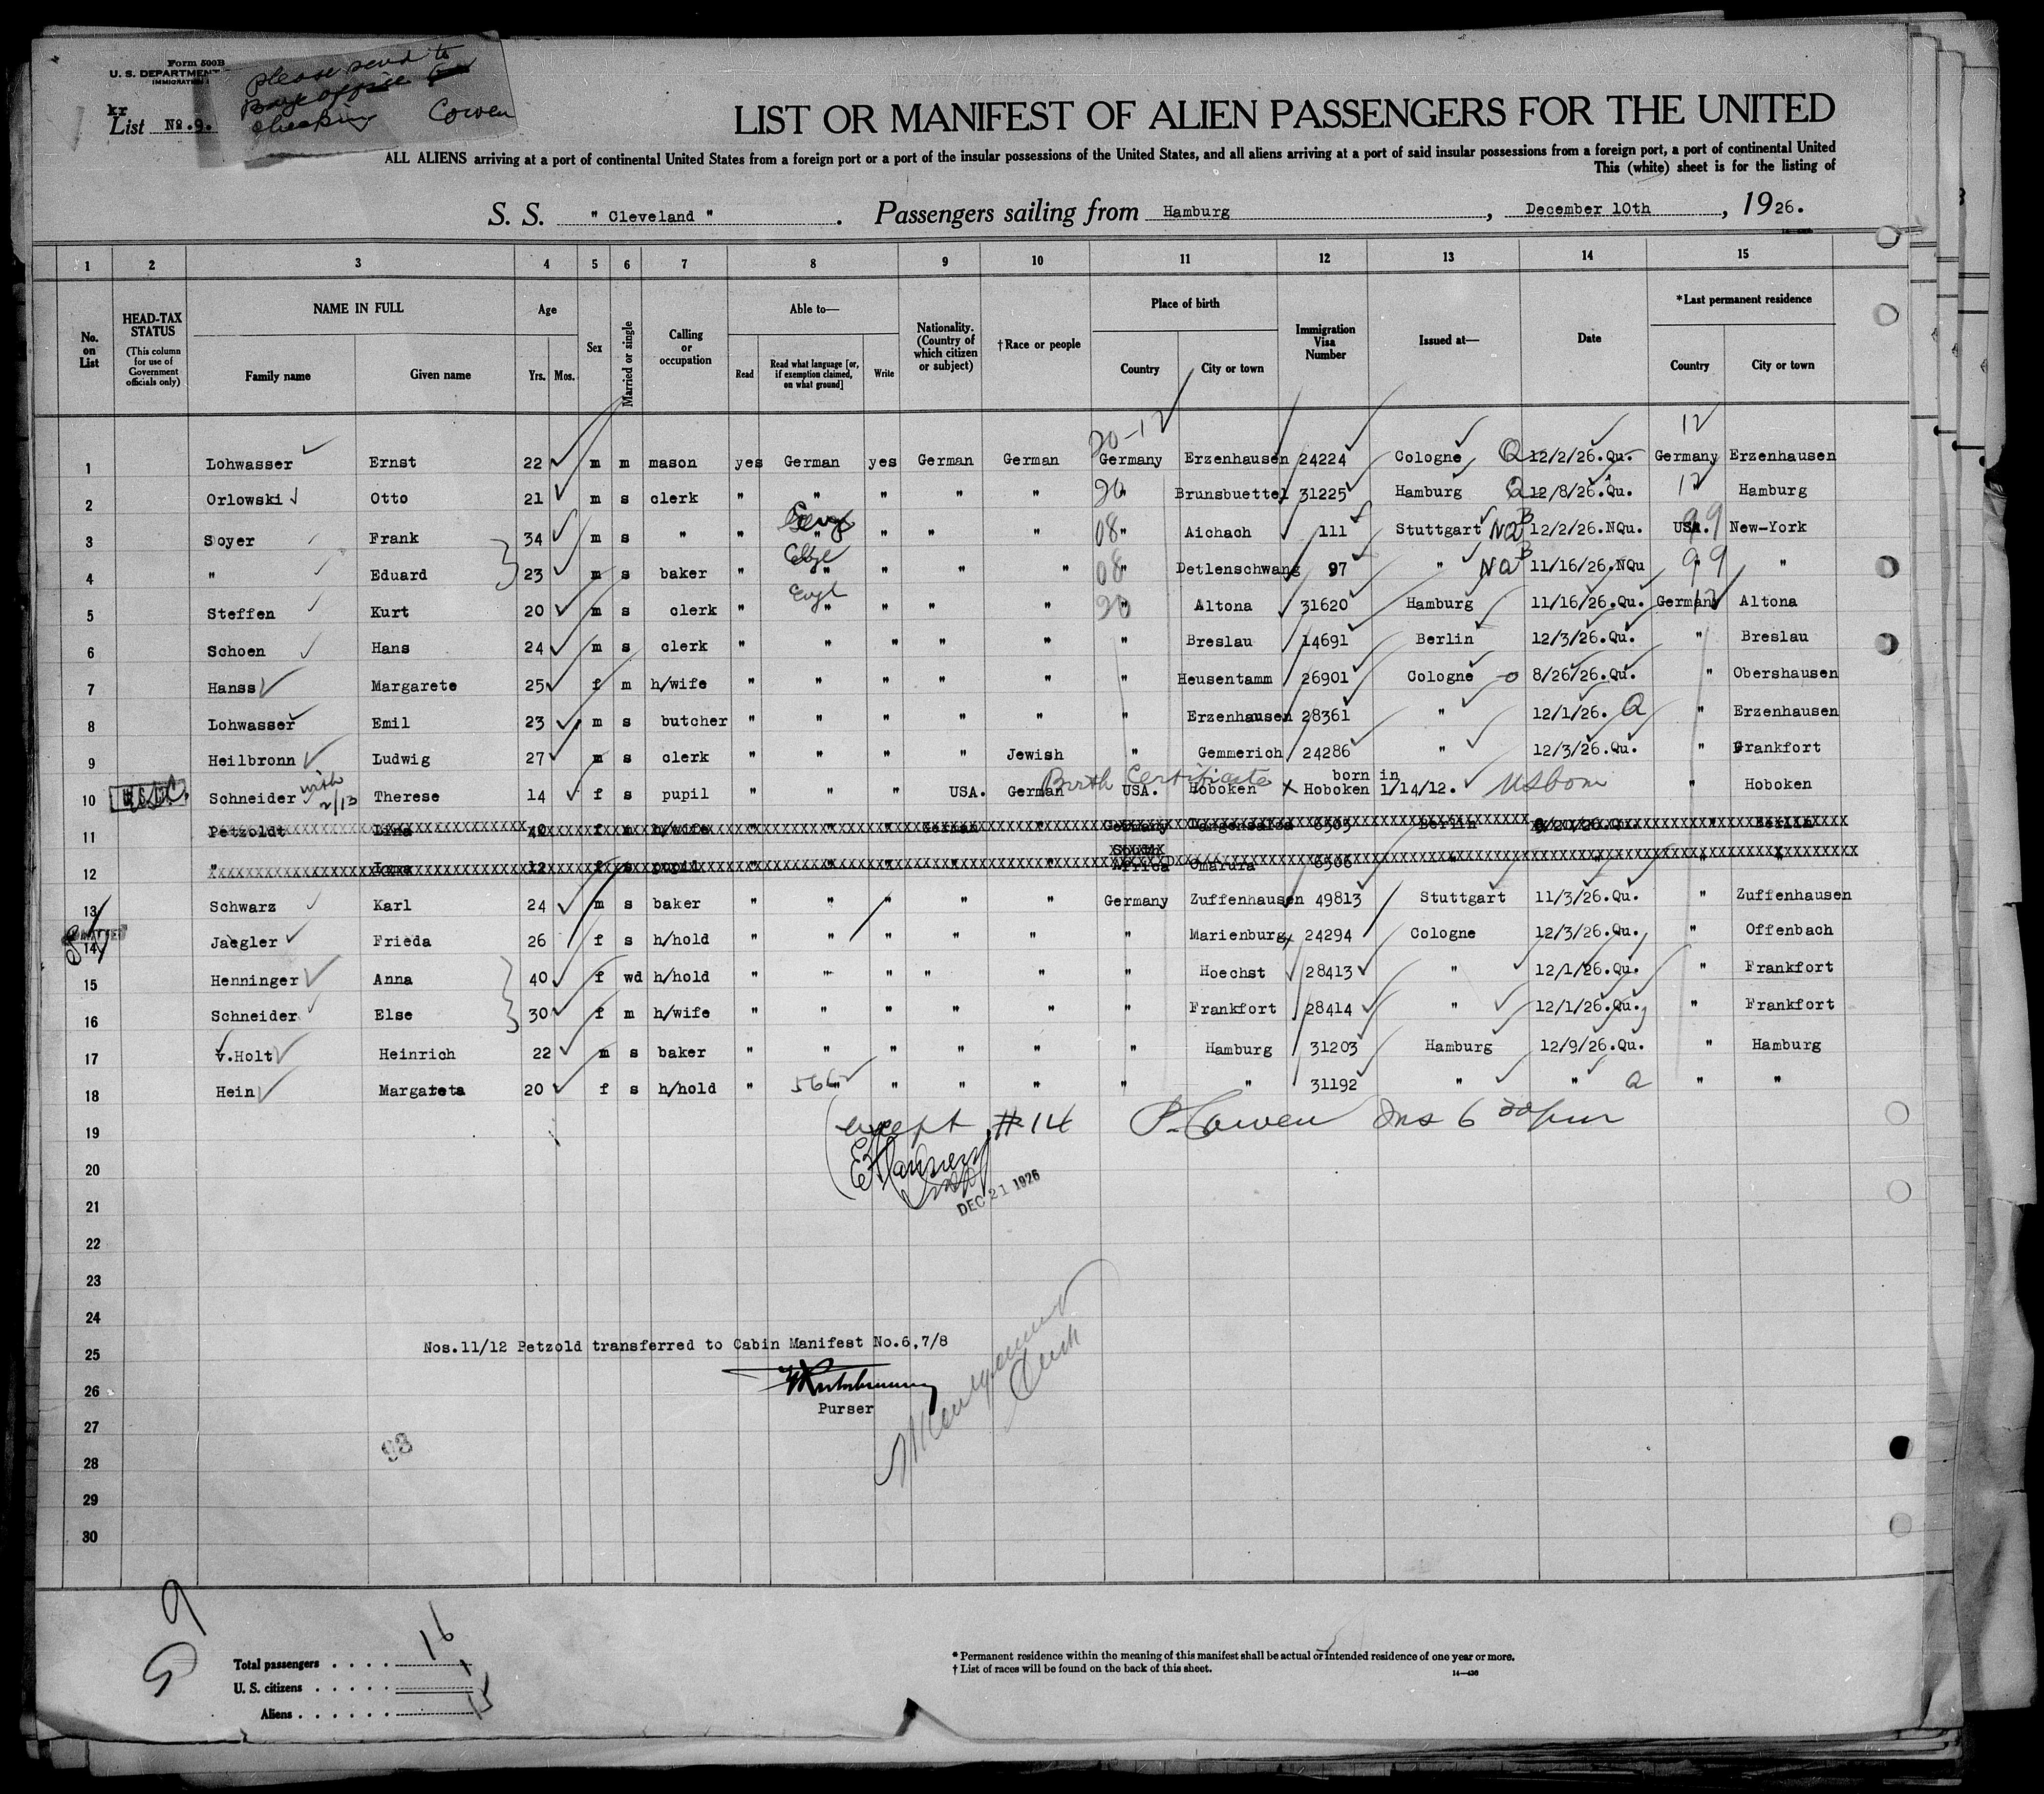 Form 500B
U. S. DEPARTMENT
IMMIGRATION
please send to
Barge office for
checking Cowen
kr
List No. 9.
LIST OR MANIFEST OF ALIEN PASSENGERS FOR THE UNITED
ALL ALIENS arriving at a port of continental United States from a foreign port or a port of the insular possessions of the United States, and all aliens arriving at a port of said insular possessions from a foreign port, a port of continental United
This (white) sheet is for the listing of
S. S. " Cleveland " . Passengers sailing from Hamburg , December 10th , 1926.
1 2 3 4 5 6 7 8 9 10 11 12 13 14 15
No. on List HEAD-TAX STATUS (This column for use of Government officials only) NAME IN FULL Age Sex Married or single Calling or occupation Able to— Nationality. (Country of which citizen or subject) †Race or people Place of birth Immigration Visa Number Issued at— Date *Last permanent residence
Family name Given name Yrs. Mos. Read Read what language [or, if exemption claimed, on what ground] Write Country City or town Country City or town
20-12 12
1 Lohwasser Ernst 22 m m mason yes German yes German German Germany Erzenhausen 24224 Cologne Q 12/2/26.Qu. Germany Erzenhausen
2 Orlowski Otto 21 m s clerk " " " " " 20 " Brunsbuettel 31225 Hamburg Q 12/8/26.Qu. 12 Hamburg
3 Soyer Frank 34 m s " " Engl " " " " 08 " Aichach 111 Stuttgart NQB 12/2/26.NQu. USA. 99 New-York
4 " Eduard 23 m s baker " Engl " " " " 08 " Detlenschwang 97 " NQB 11/16/26.NQu 99 " "
5 Steffen Kurt 20 m s clerk " Engl " " " " 20 " Altona 31620 Hamburg 11/16/26.Qu. Germany 12 Altona
6 Schoen Hans 24 m s clerk " " " " " " Breslau 14691 Berlin 12/3/26.Qu. " Breslau
7 Hanss Margarete 25 f m h/wife " " " " " " Heusentamm 26901 Cologne 8/26/26.Qu. " Obershausen
8 Lohwasser Emil 23 m s butcher " " " " " " Erzenhausen 28361 " 12/1/26. Q " Erzenhausen
9 Heilbronn Ludwig 27 m s clerk " " " " Jewish " Gemmerich 24286 " 12/3/26.Qu. " Frankfort
10 USC. Schneider with 2/13 Therese 14 f s pupil " " " USA. German Birth Certificate USA. Hoboken x born in Hoboken 1/14/12. USborn " Hoboken
11 Petzoldt Lina 40 f m h/wife " " " German " Germany Langensalza 6505 Berlin " Berlin
12 " 12 f s pupil " " " " " South Africa Omarura 6506 " " " "
13 Schwarz Karl 24 m s baker " " " " " Germany Zuffenhausen 49813 Stuttgart 11/3/26.Qu. " Zuffenhausen
ADMITTED
14 Jaegler Frieda 26 f s h/hold " " " " " " Marienburg x 24294 Cologne 12/3/26.Qu. " Offenbach
15 Henninger Anna 40 f wd h/hold " " " " " " Hoechst 28413 " 12/1/26.Qu. " Frankfort
16 Schneider Else 30 f m h/wife " " " " " " Frankfort 28414 " 12/1/26.Qu. " Frankfort
17 v.Holt Heinrich 22 m s baker " " " " " " Hamburg 31203 Hamburg 12/9/26.Qu. " Hamburg
18 Hein Margareta 20 f s h/hold " " " " " " " 31192 " " Q " "
19 except #14 P. Cowen Ins 6 30 pm
20
21 DEC 21 1926
22
23
24
25 Nos.11/12 Petzold transferred to Cabin Manifest No.6,7/8
26
Purser
27
28 93
29
30
9
Total passengers . . . . 16
U. S. citizens . . . . . 1
Aliens . . . . . . 15
* Permanent residence within the meaning of this manifest shall be actual or intended residence of one year or more.
† List of races will be found on the back of this sheet.
14—430